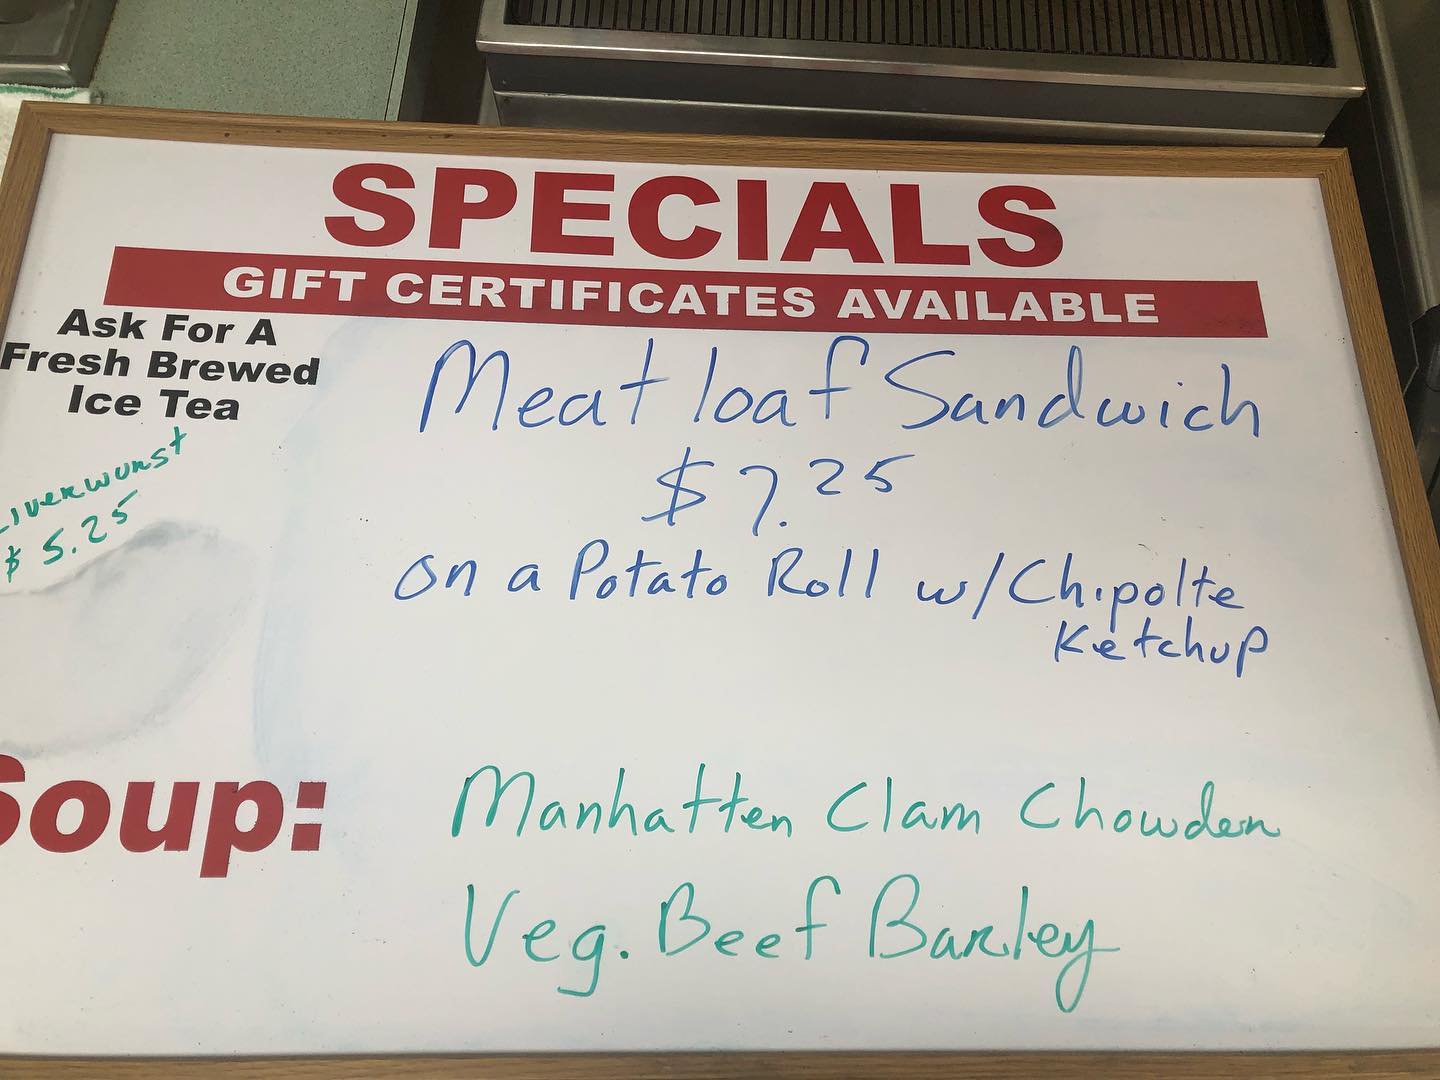 SPECIALS
GIFT CERTIFICATES AVAILABLE
Ask For A
Fresh Brewed
Ice Tea
Liverwurst
$ 5.25
Meat loaf Sandwich
$7.25
on a Potato Roll w/Chipolte
Ketchup
Soup:
Manhatten Clam Chowder
Veg. Beef Barley